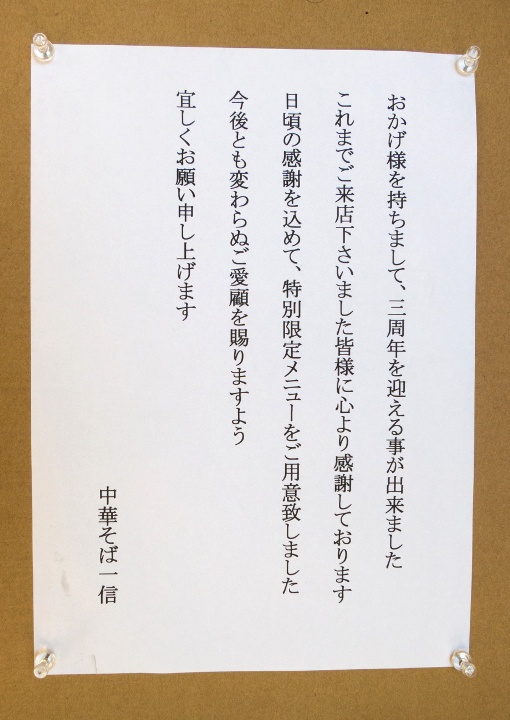 おかげ様を持ちまして、三周年を迎える事が出来ました
これまでご来店下さいました皆様に心より感謝しております
日頃の感謝を込めて、特別限定メニューをご用意致しました
今後とも変わらぬご愛顧を賜りますよう
宜しくお願い申し上げます
中華そば一信